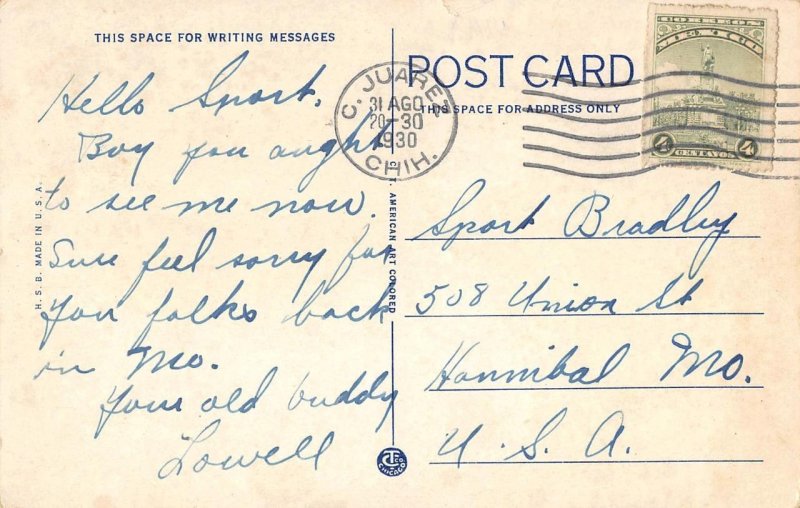 THIS SPACE FOR WRITING MESSAGES
Hello Sport.
Boy you aught
to see me now.
Sure feel sorry for
you folks back
in Mo.
Your old buddy
Lowell
H. S. B. MADE IN U. S. A.
C. T. AMERICAN ART COLORED
POST CARD
THIS SPACE FOR ADDRESS ONLY
C. JUAREZ
31 AGO
20-30
1930
CHIH.
CORREOS
4 CENTAVOS 4
Sport Bradley
508 Union St
Hannibal Mo.
U. S. A.
CT CO
CHICAGO